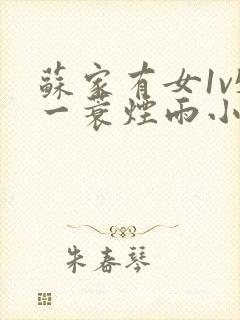 蘇家有女1v
一蓑煙雨小
朱春琴